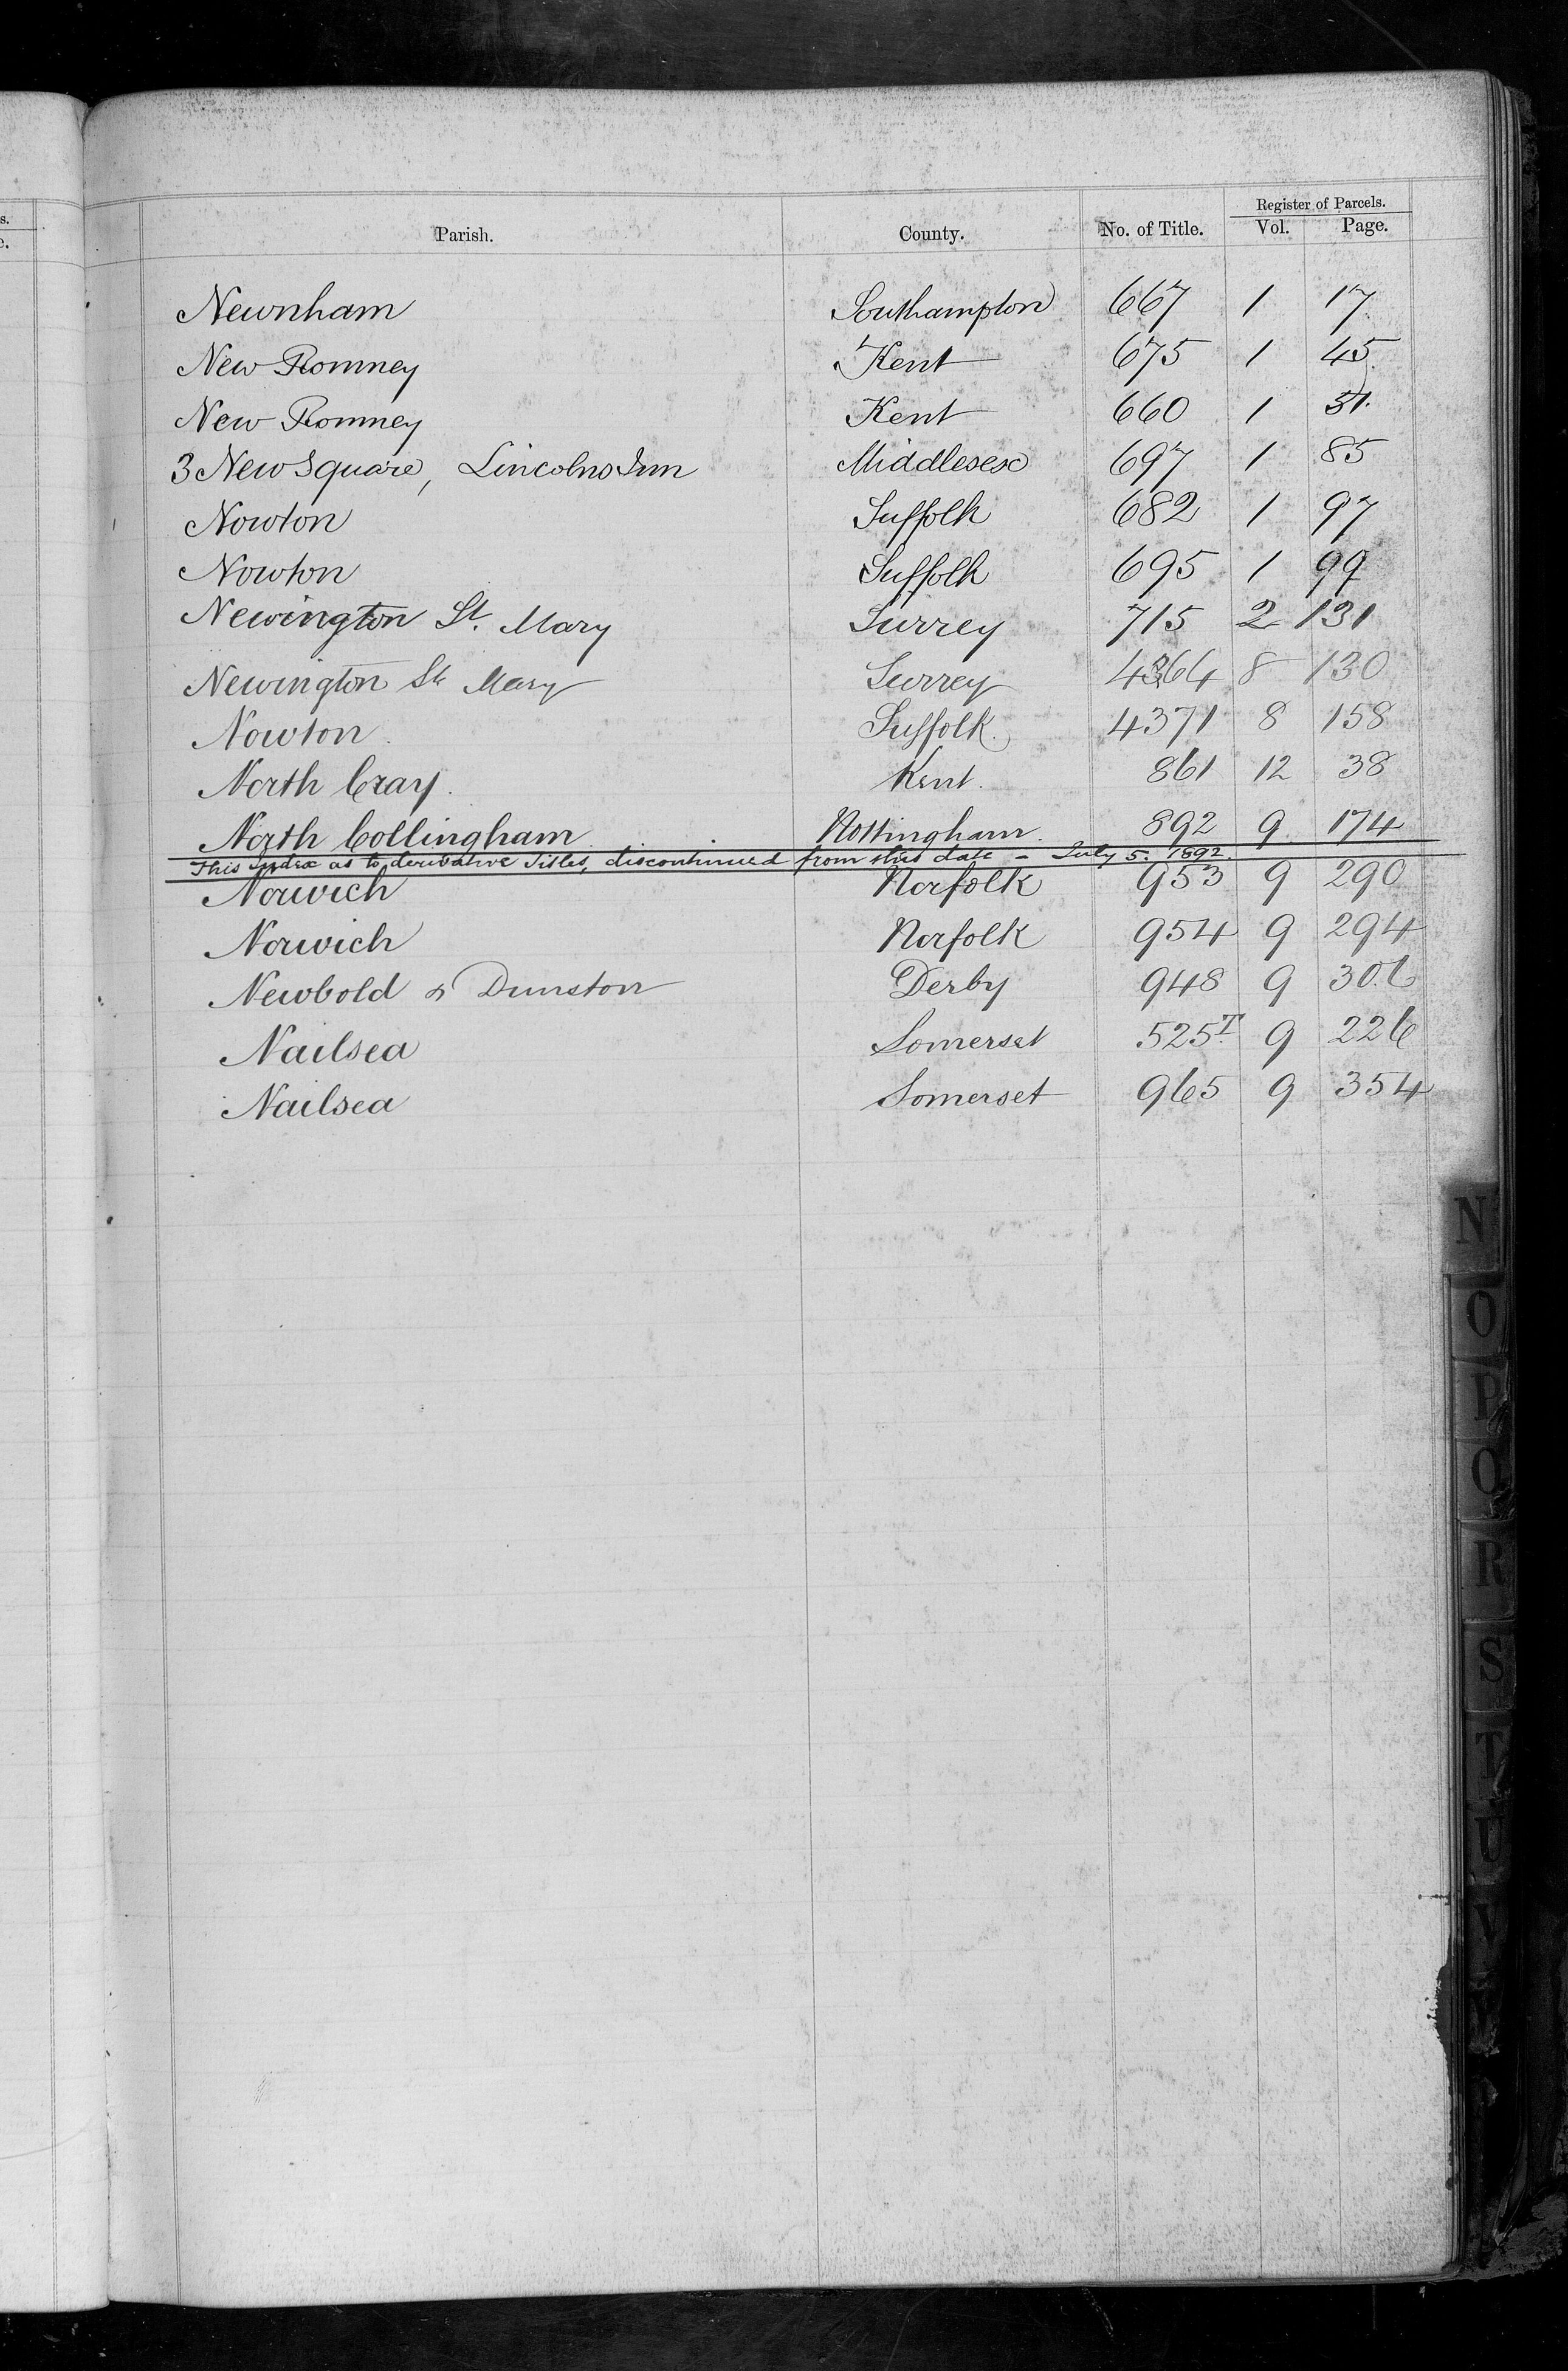 s.
e.
Parish. County. No. of Title. Register of Parcels. Vol. Page.
Newnham Southampton 667 1 17
New Romney Kent 675 1 45
New Romney Kent 660 1 31.
3 New Square, Lincolns Inn Middlesex 697 1 85
Nowton Suffolk 682 1 97
Nowton Suffolk 695 1 99
Newington St. Mary Surrey 715 2 131
Newington St Mary Surrey 4364 8 130
Nowton. Suffolk. 4371 8 158
North Cray. Kent. 861 12 38
North Collingham Nottingham. 892 9 174
This Index as to derivative Titles, discontinued from this date – July 5. 1892.
Norwich Norfolk 953 9 290
Norwich Norfolk 954 9 294
Newbold & Dunston Derby 948 9 306
Nailsea Somerset 525T 9 226
Nailsea Somerset 965 9 354
N
O
P
Q
R
S
T
U
V